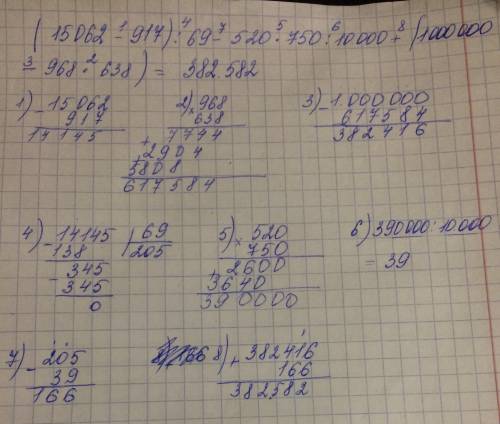 (15062 - 917) : 69 - 520 · 750 : 10000 + (1000000
- 968 · 638) = 382.582
1) - 15062
917
14145
2) × 968
638
7744
+ 2904
+ 5808
617584
3) - 1.000000
617584
382416
4) - 14145 | 69
138 | 205
- 345
345
0
5) × 520
750
+ 2600
3640
390000
6) 390000 : 10000
= 39
7) - 205
39
166
8) + 382416
166
382582